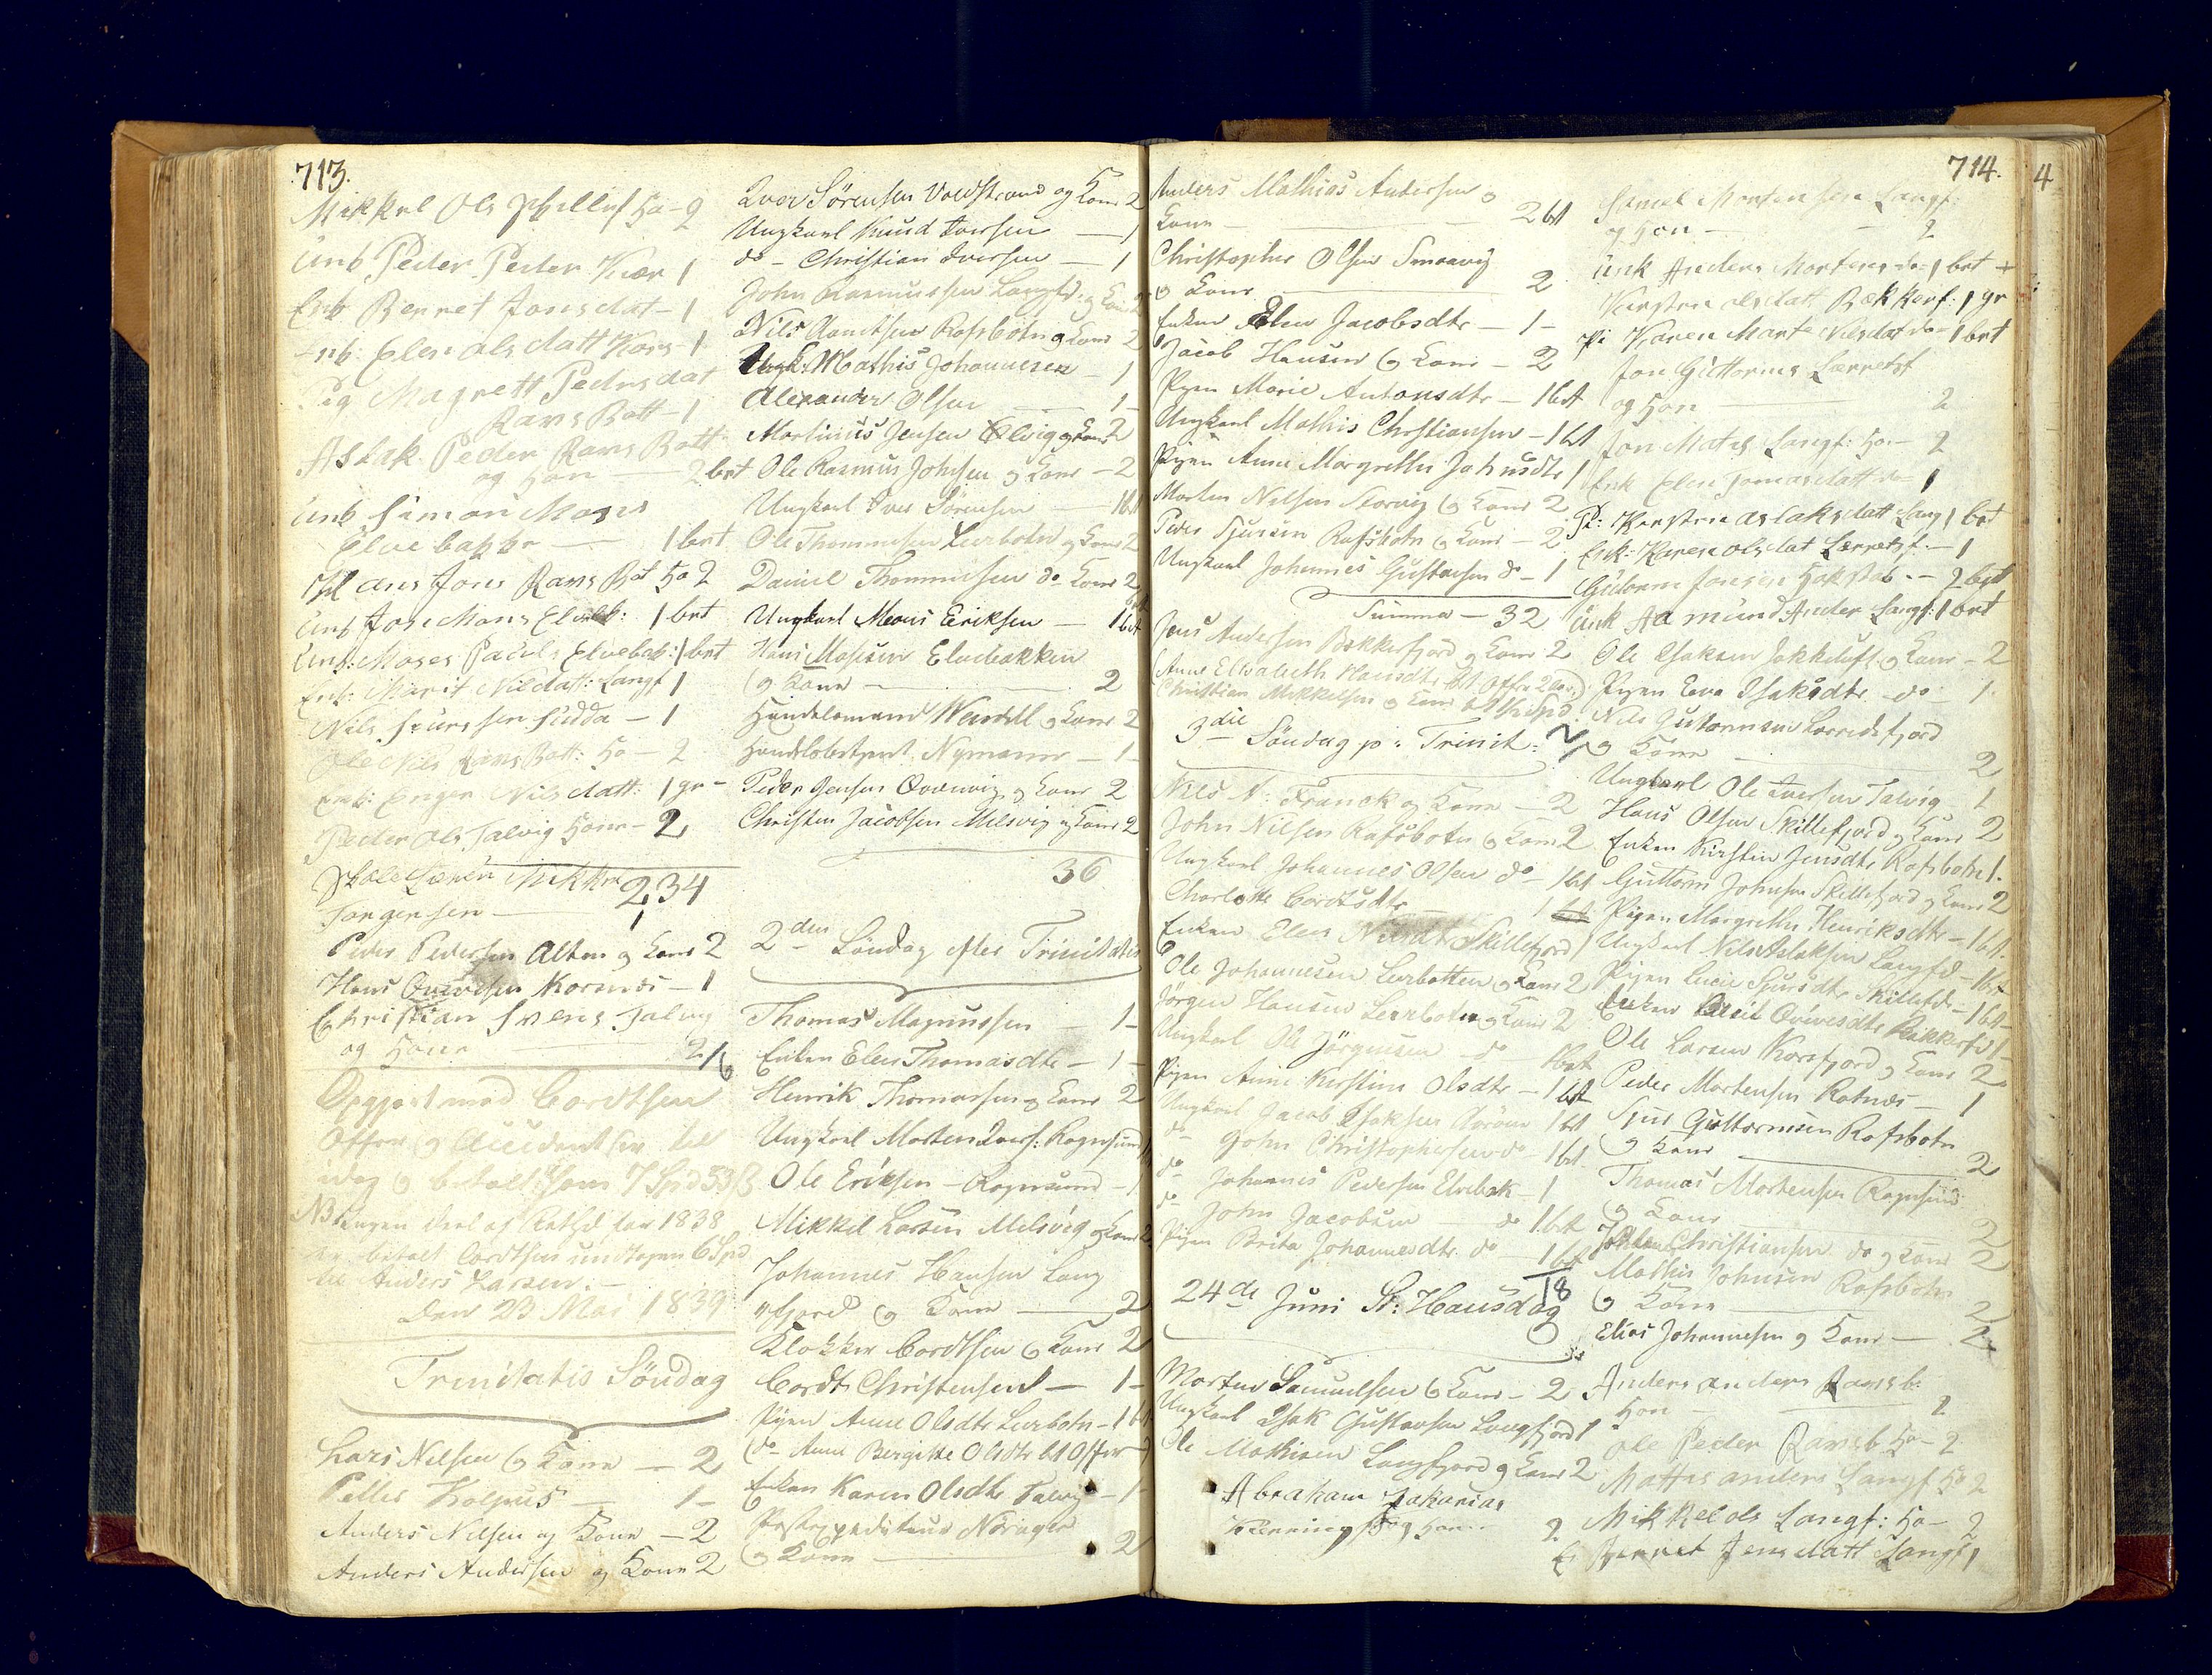 713.
Mikkel Ols Skillef Ho - 2
Unk Peder Peder Kaar 1
Enk Berret Jonsdat - 1
Enk: Elen Ols datt Kors - 1
Pig Magrett Pedersdat
Rafs Bott - 1
Aslak Peder Rafs Bott
og Kon - 2 bet
Unk Simon Mons
Elve bakke — 1 bet
Jon Rafs Bot Ko 2
Unk Jon Mons Elveb: 1 bet
Unk: Moses Pauls Elvebak: 1 bet
Enk: Marit Nilsdatt: Langf 1
Nils - 1
Ole Nils Rafs Bott: Ko - 2
Enk: Inger Nils datt: 1 gr -
Peder Ols Talvig Kone - 2
Skolelærer Mikkel
234
Torgersen — 1
Peder Pedersen Alten og Kone 2
Hans Korsnæs - 1
Christian Svens Talvig
og Kone — 2
Opgjort med Cordtsen
Offer og Accidentser til
idag og betalt ham 7 Spd 53 ß
NB ingen deel af for 1838
er betalt Cordtsen undtagen 6 Spd
til Anders Larsen. -
Den 23 Mai 1839
Trinitatis Söndag
Lars Nilsen og Kone — 2
Peder — 1 -
Anders Nilsen og Kone - 2
Anders Andersen og Kone 2
Iver Sörensen og Kone 2
Ungkarl Knud Iversen — 1
do - Christian Iversen — 1
John Rasmussen Langfd: og Kone 2
Nils Rafsbotn og Kone 2
Ungk: Mathis Johannesen - 1
Alexander Olsen — 1 -
Martinus Jensen og Kone 2
Ole Rasmus Johnsen og Kone - 2
Ungkarl Iver Sörensen — 1 bt
Ole Thommesen Leerbotn og Kone 2
Daniel Thommesen do Kone 2
Ungkarl Mons Eriksen — 1 bt
Hans Mosesen Elvebakken
og Kone — 2
Handelsmand og Kone 2
Handelsbetjent Nymann — 1 -
Peder Jensen Qvænvig og Kone 2
Christen Jacobsen Melsvig og Kone 2
36
2den Söndag efter Trinitatis
Thomas Magnussen — 1 -
Enken Elen Thomasdtr — 1 -
Henrik Thomassen og Kone 2
Ungkarl Morten Ivers: Rognsund
Ole Eriksen - Rognsund - 1
Mikkel Larsen Melsvig og Kone 2
Johannes Hansen Lang
"fjord og Kone — 2
Klokker Cordtsen og Kone 2
Cordt Christensen — 1 -
Pigen Anne Olsdtr Leerbotn - 1 bt
(do Anne Bergitte Olsdtr bt Offer)
Enken Karen Olsdtr Talvig - 1 -
Postexpediteur Norager
og Kone — 2
714.
Anders Mathias Andersen og
Kone — 2 bt
Christopher Olsen Smaavig
og Kone — 2
Enken Elen Jacobsdtr — 1 -
Jacob Hansen og Kone - 2
Pigen Marie Antonsdtr - 1 bt
Ungkarl Mathis Christiansen - 1 bt
Pigen Anne Margrethe Johnsdtr 1
Morten Nilsen Storvig og Kone 2
Peder Sjursen Rafsbotn og Kone - 2
Ungkarl Johannes Gustavsen do - 1
Summa - 32
Jens Andersen Bekkerfjord og Kone 2
(Anne Elisabeth Hansdtr bt Offer)
Christian Mikkelsen og Kone
3die Söndag p: Trinit:
Nils N: Franck og Kone - 2
John Nilsen Rafsbotn og Kone 2
Ungkarl Johannes Olsen do - 1 bt
Charlotte Cordtsdtr — 1
Enken Elen Nilsdtr Skillefjord 1
Ole Johannesen Leerbotten og Kone 2
Jörgen Hansen Leerbotn og Kone 2
Ungkarl Ole Jörgensen do 1 bt
Pigen Anne Kirstine Olsdtr - 1 bt
Ungkarl Jacob Isaksen Aaröen 1 bt
do John Christophersen do - 1 bt
do Johannes Pedersen Elvebak - 1
do John Jacobsen — do 1 bt
Pigen Brita Johannesdtr do — 1 bt
18
24de Juni St: Hansdag
Morten Samuelsen og Kone - 2
Ungkarl Isak Gustavsen Langfjord 1
Ole Mathisen Langfjord og Kone 2
Abraham Zakarias
og Kone 2
Samel Mortensen Langf:
og Kon — 2
Unk Anders Mortens do - 1 bet +
Kirsten Olsdatt Bekkerf: 1 gr
Pi Karen Marte Nilsdat do - 1 bet
Jon Guttorms Lerretsf
og Kon — 2
Jon Matis Langf: Ko - 2
Enk Elen Tomasdatt do - 1
Pi: Kirsten Aslaksdatt Lang 1 bet
Enk: Karen Olsdat Lerretsf. - 1
Gutorm Jonsen Kakstab - 2 bet
Unk Aamund Ander Langf: 1 bet
Ole Isaksen Jakkeluft og Kone - 2
Pigen Eva Isaksdtr do - 1 -
Nils Guttormsen Lerredsfjord
og Kone — 2
Ungkarl Ole Iversen Talvig 1
Hans Olsen Skillefjord og Kone 2
Enken Kirsten Jensdtr Rafsbotn 1 -
Guttorm Johnsen Skillefjord og Kone 2
Pigen Margrethe Henriksdtr - 1 bt.
Ungkarl Nils Aslaksen Langfd - 1 bt
Pigen Lucie Sjursdtr Skillefd - 1 bt
Enken Berit Bekkerfd 1 -
Ole Larsen Korsfjord og Kone 2
Peder Mortensen Rotnæs - 1
Sjur Guttormsen Rafsbotn
og Kone — 2
Thomas Mortensen Rognsund
og Kone — 2
Christiansen do og Kone 2
Mathis Johnsen Rafsbotn
og Kone — 2
Elias Johannesen og Kone — 2
Anders Anders Rafsb:
Kon — 2
Ole Peder Rafsb. Ko - 2
Mattis Anders Langf Ko 2
Mikkel Ols Langf: Ko - 2
E Berret Jensdatt Langf 1
4